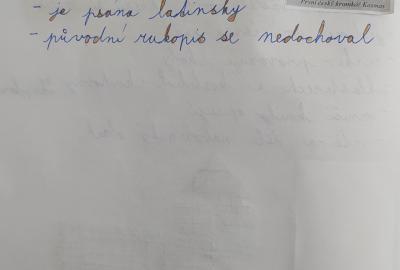 První český kronikář Kosmas
- je psána latinsky
- původní rukopis se nedochoval